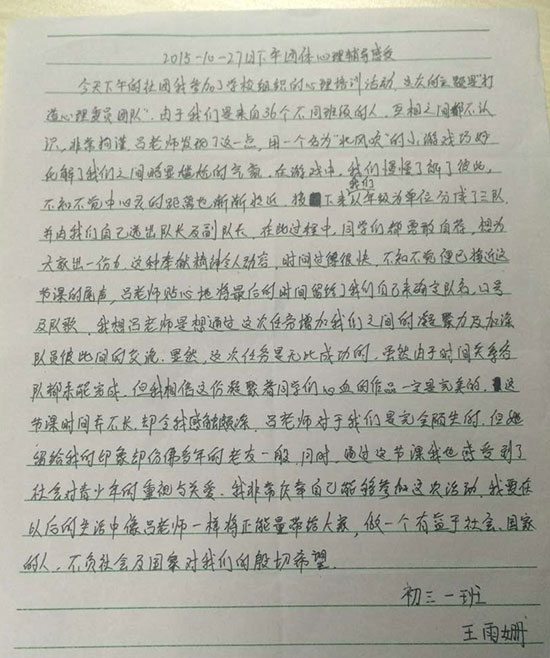 2015-10-27日下午团体心理辅导感受
今天下午的社团我参加了学校组织的心理培训活动,这次的主题是"打
造心理委员团队"。由于我们是来自36个不同班级的人,互相之间都不认
识,非常拘谨,吕老师发现了这一点,用一个名为"北风吹"的小游戏巧妙
化解了我们之间略显尴尬的气氛。在游戏中,我们慢慢了解了彼此,
不知不觉中心灵的距离也渐渐拉近。接下来我们以年级为单位分成了三队,
并由我们自己选出队长及副队长。在此过程中,同学们都勇敢自荐,想为
大家出一份力,这种奉献精神令人动容,时间过得很快,不知不觉便已接近这
节课的尾声,吕老师贴心地将最后的时间留给了我们自己来确定队名,口号
及队歌,我想吕老师是想通过这次任务增加我们之间的凝聚力及加深
队员彼此间的交流。果然,这次任务是无比成功的,虽然由于时间关系各
队都未能完成,但我相信这份凝聚着同学们心血的作品一定是完美的,这
节课时间并不长,却令我感触颇深,吕老师对于我们是完全陌生的,但她
留给我的印象却仿佛多年的老友一般,同时,通过这节课我也感受到了
社会对青少年的重视与关爱。我非常庆幸自己能够参加这次活动,我要在
以后的生活中像吕老师一样将正能量带给大家,做一个有益于社会、国家
的人,不负社会及国家对我们的殷切希望。
初三一班
王雨姗